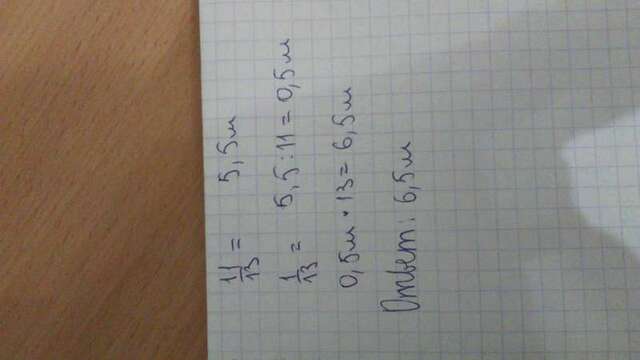 11/13 = 5,5м
1/13 = 5,5:11 = 0,5м
0,5м · 13 = 6,5м
Ответ: 6,5м